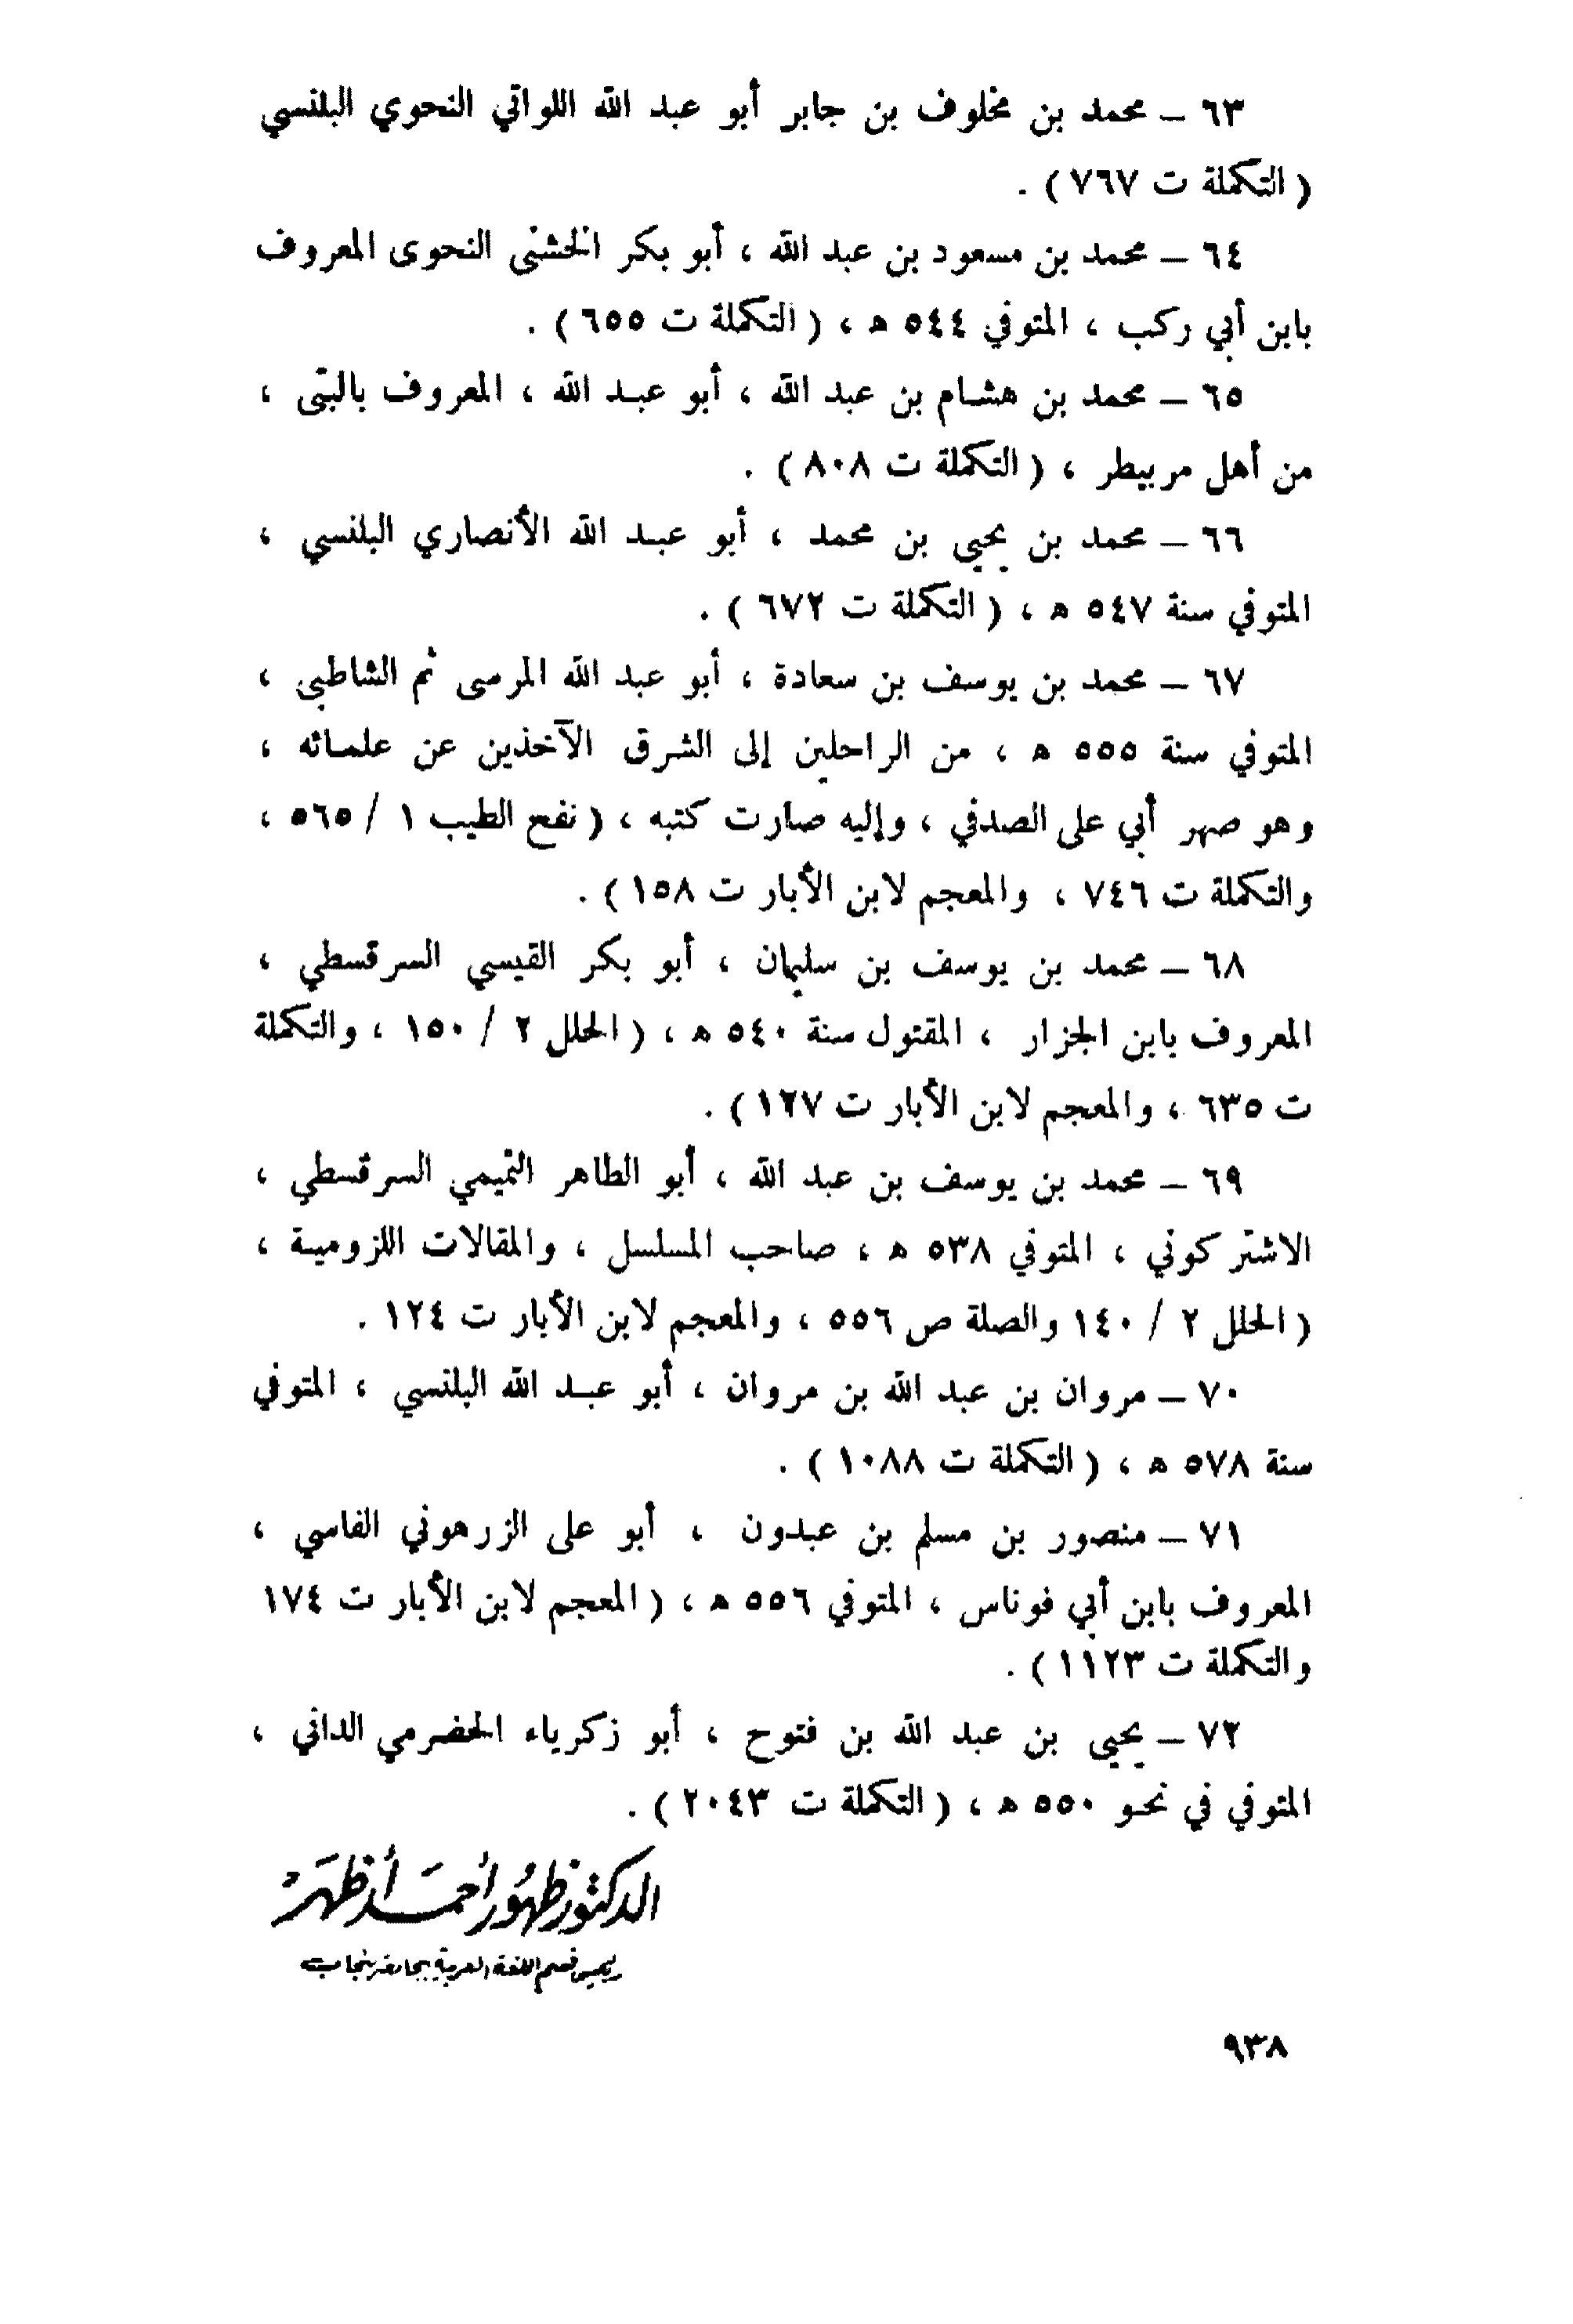 ٦٣ – محمد بن مخلوف بن جابر أبو عبد الله اللواتي النحوي البلنسي
( التكملة ت ٧٦٧ ) .
٦٤ – محمد بن مسعود بن عبد الله ، أبو بكر الخشنى النحوى المعروف
بابن أبي ركب ، المتوفي ٥٤٤ ه ، ( التكملة ت ٦٥٥ ) .
٦٥ – محمد بن هشام بن عبد الله ، أبو عبد الله ، المعروف بالبتى ،
من أهل مربيطر ، ( التكملة ت ٨٠٨ ) .
٦٦ – محمد بن يحيي بن محمد ، أبو عبد الله الأنصاري البلنسي ،
المتوفي سنة ٥٤٧ ه ، ( التكملة ت ٦٧٢ ) .
٦٧ – محمد بن يوسف بن سعادة ، أبو عبد الله المرسى ثم الشاطبي ،
المتوفي سنة ٥٥٥ ه ، من الراحلين إلى الشرق الآخذين عن علمائه ،
وهو صهر أبي على الصدفي ، وإليه صارت كتبه ، ( نفح الطيب ١ / ٥٦٥ ،
والتكملة ت ٧٤٦ ، والمعجم لابن الأبار ت ١٥٨ ) .
٦٨ – محمد بن يوسف بن سليمان ، أبو بكر القيسي السرقسطي ،
المعروف بابن الجزار ، المقتول سنة ٥٤٠ ه ، ( الحلل ٢ / ١٥٠ ، والتكملة
ت ٦٣٥ ، والمعجم لابن الأبار ت ١٢٧ ) .
٦٩ – محمد بن يوسف بن عبد الله ، أبو الطاهر التميمي السرقسطي ،
الاشتركوني ، المتوفي ٥٣٨ ه ، صاحب المسلسل ، والمقالات اللزومية ،
( الحلل ٢ / ١٤٠ والصلة ص ٥٥٦ ، والمعجم لابن الأبار ت ١٢٤ .
٧٠ – مروان بن عبد الله بن مروان ، أبو عبد الله البلنسي ، المتوفي
سنة ٥٧٨ ه ، ( التكملة ت ١٠٨٨ ) .
٧١ – منصور بن مسلم بن عبدون ، أبو على الزرهوني الفاسي ،
المعروف بابن أبي فوناس ، المتوفي ٥٥٦ ه ، ( المعجم لابن الأبار ت ١٧٤
والتكملة ت ١١٢٣ ) .
٧٢ – يحيي بن عبد الله بن فتوح ، أبو زكرياء الحضرمي الداني ،
المتوفي في نحو ٥٥٠ ه ، ( التكملة ت ٢٠٤٣ ) .
الدكتور ظهور أحمد أظهر
رئيس قسم اللغة العربية بجامعة بنجاب
٩٣٨